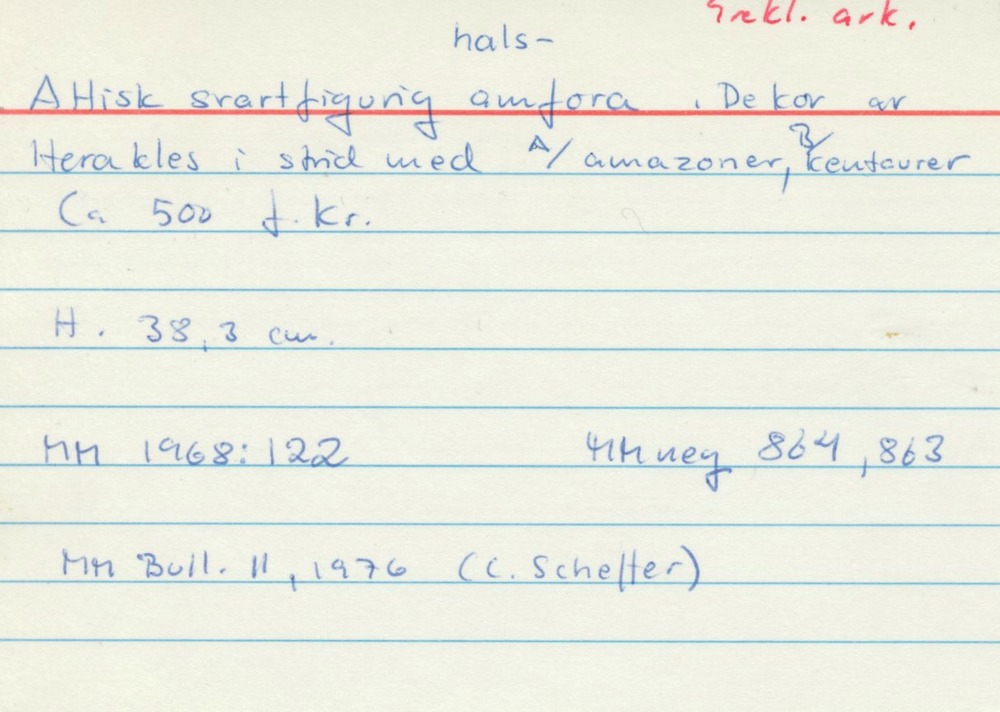 Grekl. ark.
hals-
Attisk svartfigurig amfora. Dekor av
Herakles i strid med A/ amazoner, B/ kentaurer
Ca 500 f. Kr.
H. 38,3 cm.
MM 1968:122 MM neg 864, 863
MM Bull. 11, 1976 (C. Scheffer)